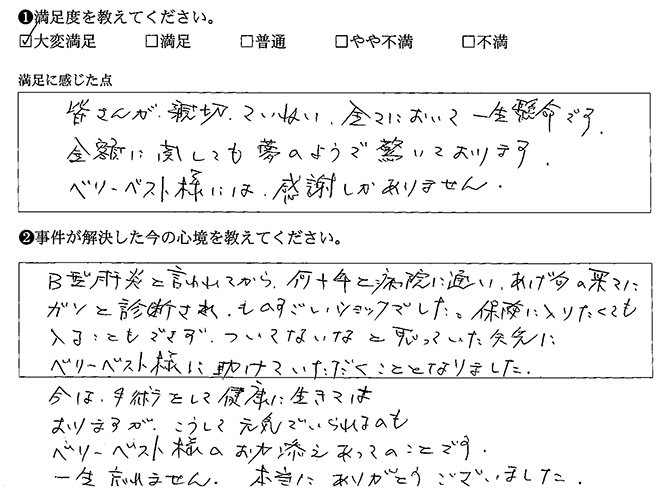 ❶満足度を教えてください。
☑大変満足 □満足 □普通 □やや不満 □不満
満足に感じた点
皆さんが、親切、ていねい、全てにおいて一生懸命です。
金額に関しても夢のようで驚いております。
ベリーベスト様には、感謝しかありません。
❷事件が解決した今の心境を教えてください。
B型肝炎と言われてから、何十年と病院に通い、あげ句の果てに
ガンと診断され、ものすごいショックでした。保険に入りたくても
入ることもできず、ついてないなと思っていた矢先に
ベリーベスト様に助けていただくこととなりました。
今は、手術をして健康に生きては
おりますが、こうして元気でいられるのも
ベリーベスト様のお力添えあってのことです。
一生忘れません。 本当にありがとうございました。